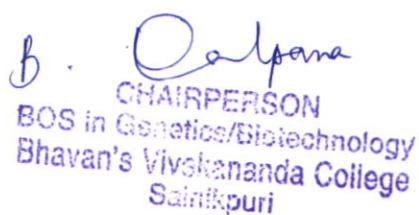 B. Kalpana
CHAIRPERSON
BOS in Genetics/Biotechnology
Bhavan's Vivekananda College
Sainikpuri